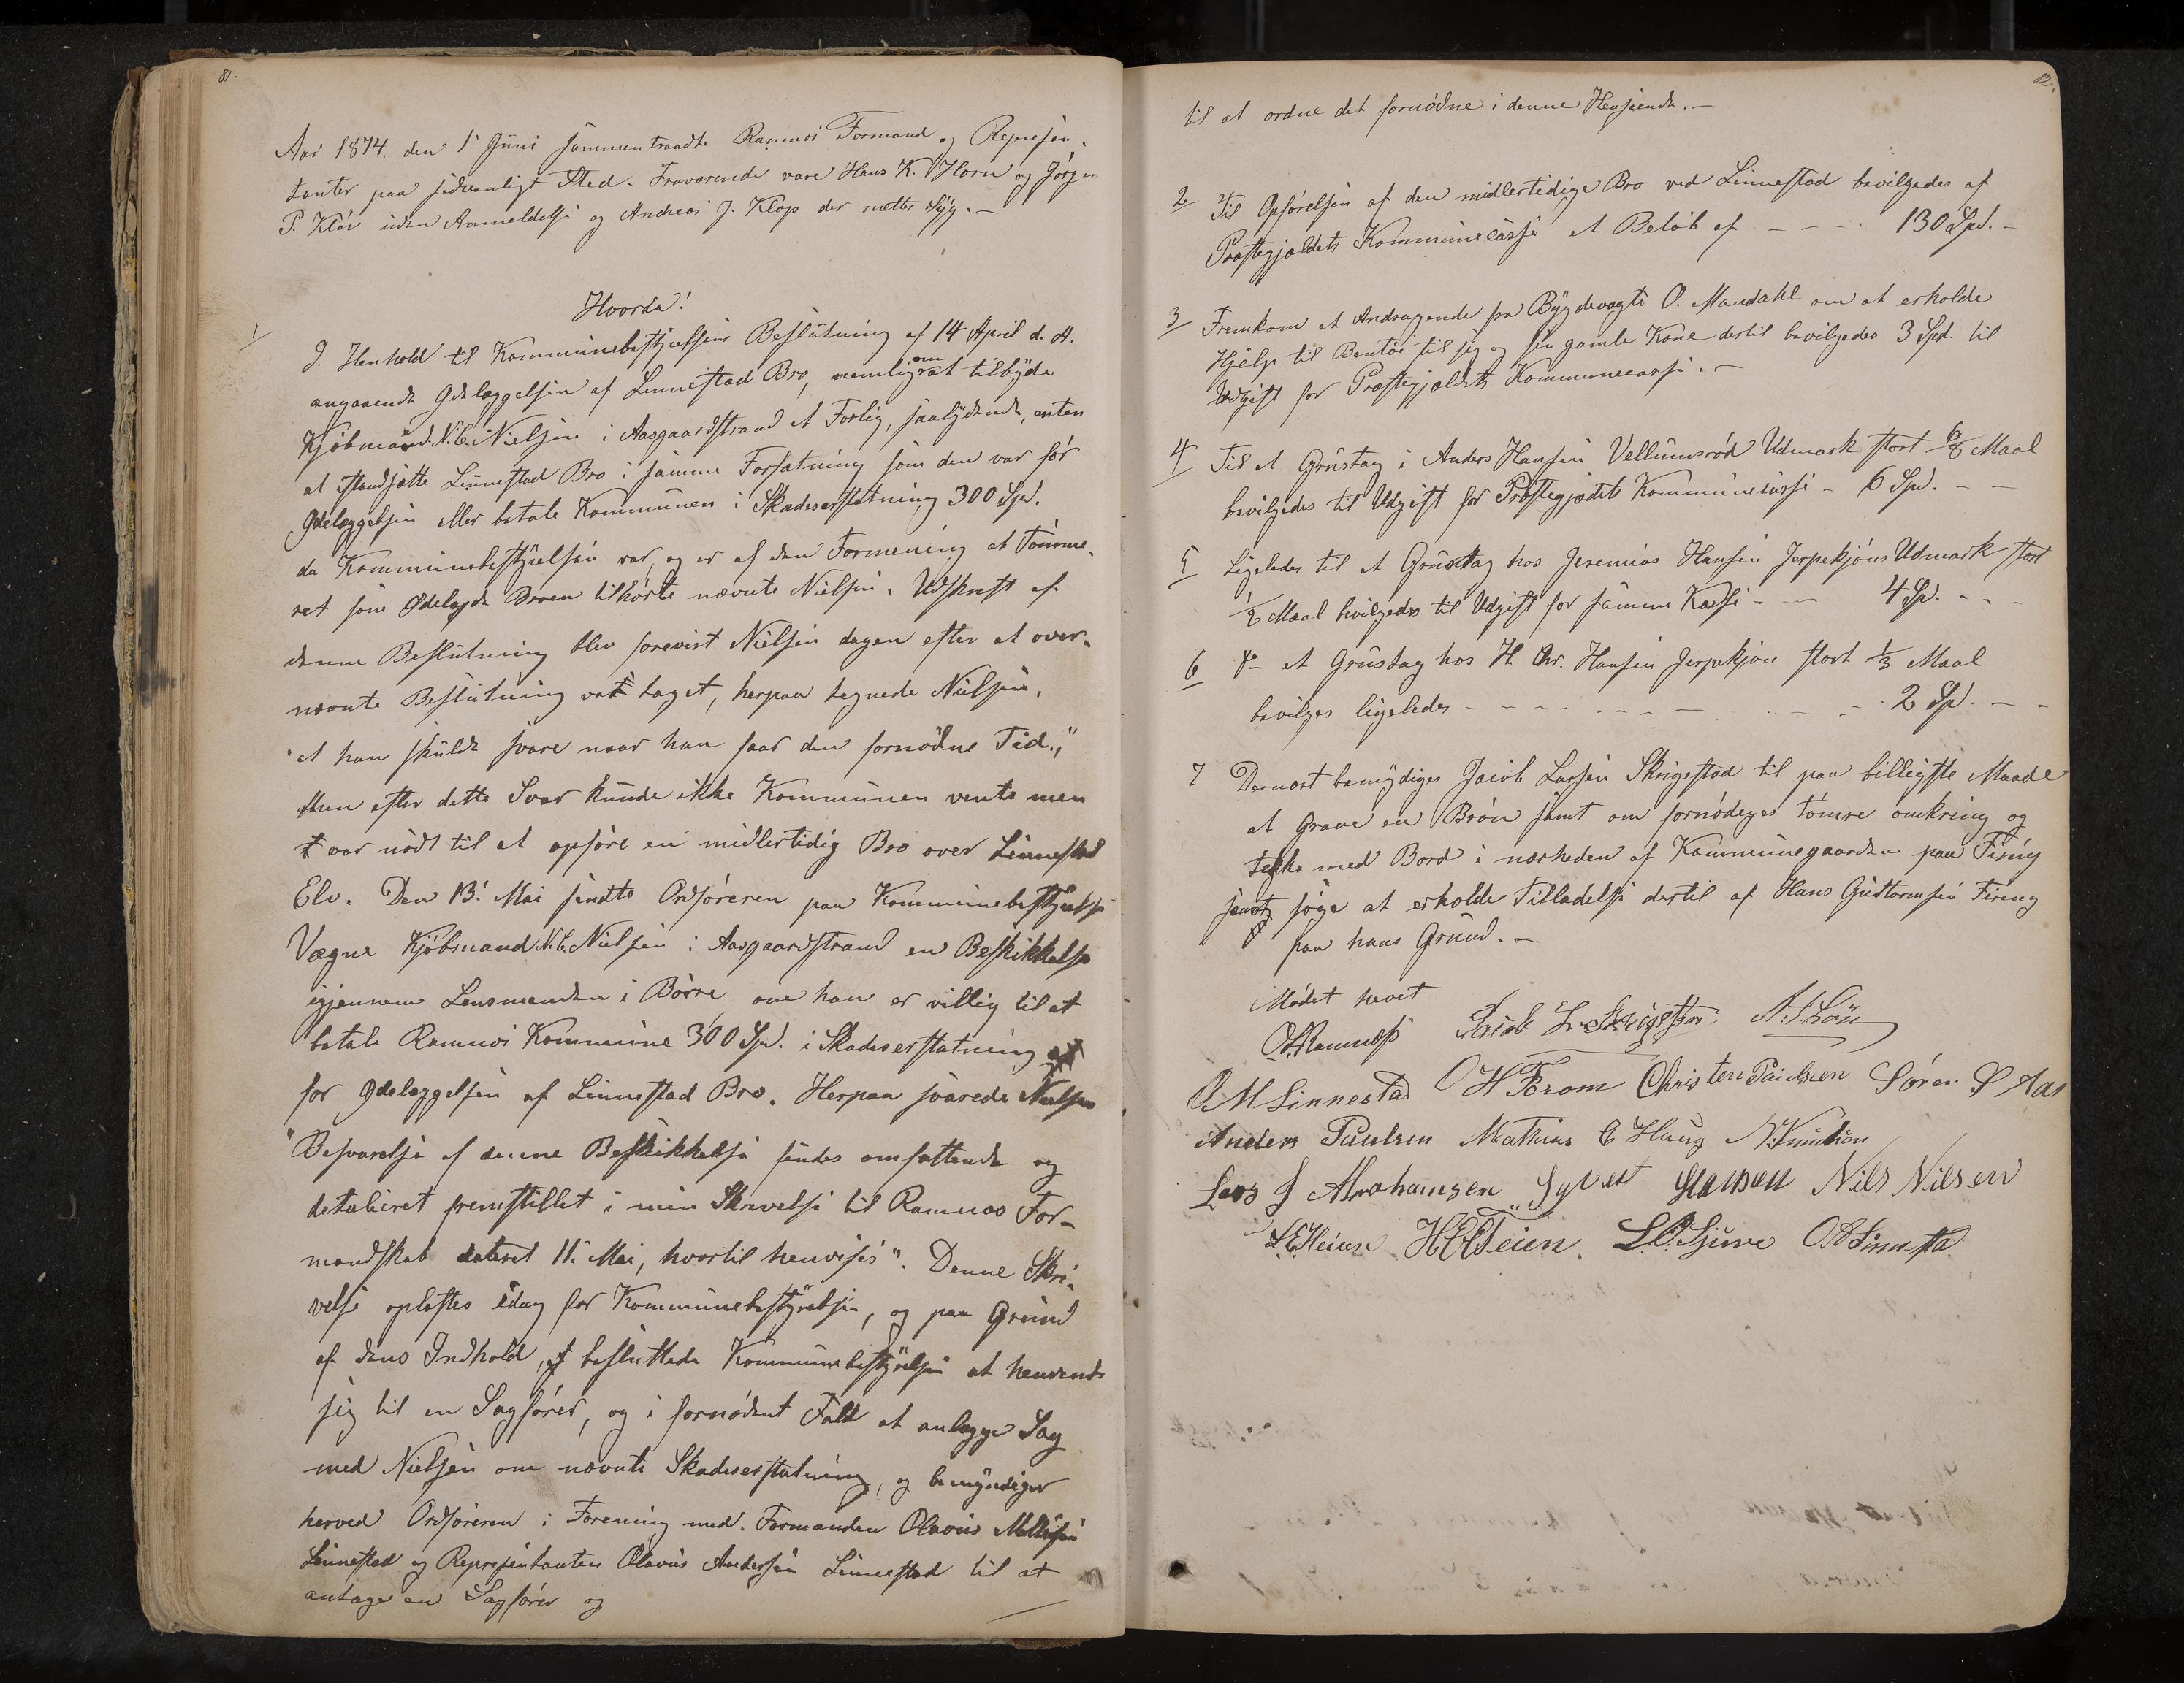 81.
Aar 1874. den 1ste Juni sammentraadte Ramnæs Formænd og Repræsen-
tanter paa sedvanligt Sted. Fraværende vare Hans K. Horn og Jørgen
P. Kløv uden Anmeldelse og Andreas J. Klop der mældtes Syg.-
Hvorda!
1
I. Henhold til Kommunebestyrelsens Beslutning af 14 April d. A.
angaaende Ødelæggelsen af Linnestad Bro, nemlig om at tilbyde
Kjøbmand N. C. Nielsen i Aasgaardstrand et Forlig, saalydende, enten
at istandsætte Linnestad Bro i samme Forfatning som den var før
Ødelæggelsen eller betale Kommunen i Skadeserstatning 300 Spd.
da Kommunebestyrelsen var og er af den Formening at Tømme-
ret som Ødelagde Broen tilhørte nævnte Nielsen. Udskrift af
denne Beslutning blev forevist Nielsen dagen efter at over-
nævnte Beslutning var taget, herpaa tegnede Nielsen,
"at han skulde svare naar han faar den fornødne Tid.,"
Men efter dette Svar kunde ikke Kommunen vente men
var nødt til at opføre en midlertidig Bro over Linnestad
Elv. Den 13de Mai sendte Ordføreren paa Kommunebestyrelse
Vægne Kjøbmand N. C. Nielsen i Aasgaardstrand en Beskikkelse
igjennem Lensmanden i Borre om han er villig til at
betale Ramnæs Kommune 300 Spd. i Skadeserstatning
for Ødelæggelsen af Linnestad Bro. Herpaa svarede Nielsen
"Besvarelse af denne Beskikkelse findes omfattende og
detalieret fremstillet i min Skrivelse til Ramnæs For-
mandskab dateret 11te Mai, hvortil henvises". Denne Skri-
velse oplæstes idag for Kommunebestyrelsen, og paa Grund
af dens Indhold, besluttede Kommunebestyrelsen at henvende
sig til en Sagfører, og i fornødent Fald at anlægge Sag
med Nielsen om nævnte Skadeserstatning, og bemyndiger
herved Ordføreren i Forening med Formanden Olavus Mathisen
Linnestad og Repræsentanten Olavus Andersen Linnestad til at
antage en Sagfører og
82.
til at ordne det fornødne i denne Henseende.-
2 Til Opførelsen af den midlertidige Bro ved Linnestad bevilgedes af
Præstegjældets Kommunecasse et Beløb af - - - - 130 Spd.-
3 Fremkom et Andragende fra Bygdevægter O. Mandahl om at erholde
Hjelp til Bentøi til sig og sin gamle Kone dertil bevilgedes 3 Spd. til
Udgift for Præstegjældets Kommunecasse.-
4 Til et Grustag i Anders Hansen Vellumsrød Udmark stort 6/8 Maal
bevilgedes til Udgift for Præstegjældets Kommunecasse - 6 Spd. - -
5 Ligeledes til et Grustag hos Jeremias Hansen Jerpekjøns Udmark stort
1/2 Maal bevilgedes til Udgift for samme Kasse - - - 4 Spd. - - -
6 do et Grustag hos H. Chr. Hansen Jerpekjøn stort 1/3 Maal
bevilges ligeledes - - - - - - - - - - - 2 Spd. - -
7 Dernæst bemyndiges Jacob Larsen Skrigestad til paa billigste Maade
at grave en Brøn samt om fornødiges tømre omkring og
tække med Bord i nærheden af Kommunegaarden paa Firing
samt søge at erholde Tilladelse dertil af Hans Guttormsen Firing
paa hans Grund.-
Mødet hævet
O. H. Ramnes Jacob L. Skrigstad A. S. Løn
O M Linnestad O H Forom Christen Paulsen Søren S Aas
Anders Paulsen Mathias C Haug N. Knudsen
Lars J Abrahamsen Syvert Hansen Nils Nilsen
L. E. Heian H E Teien L. O. Sjuve O A Linnesta